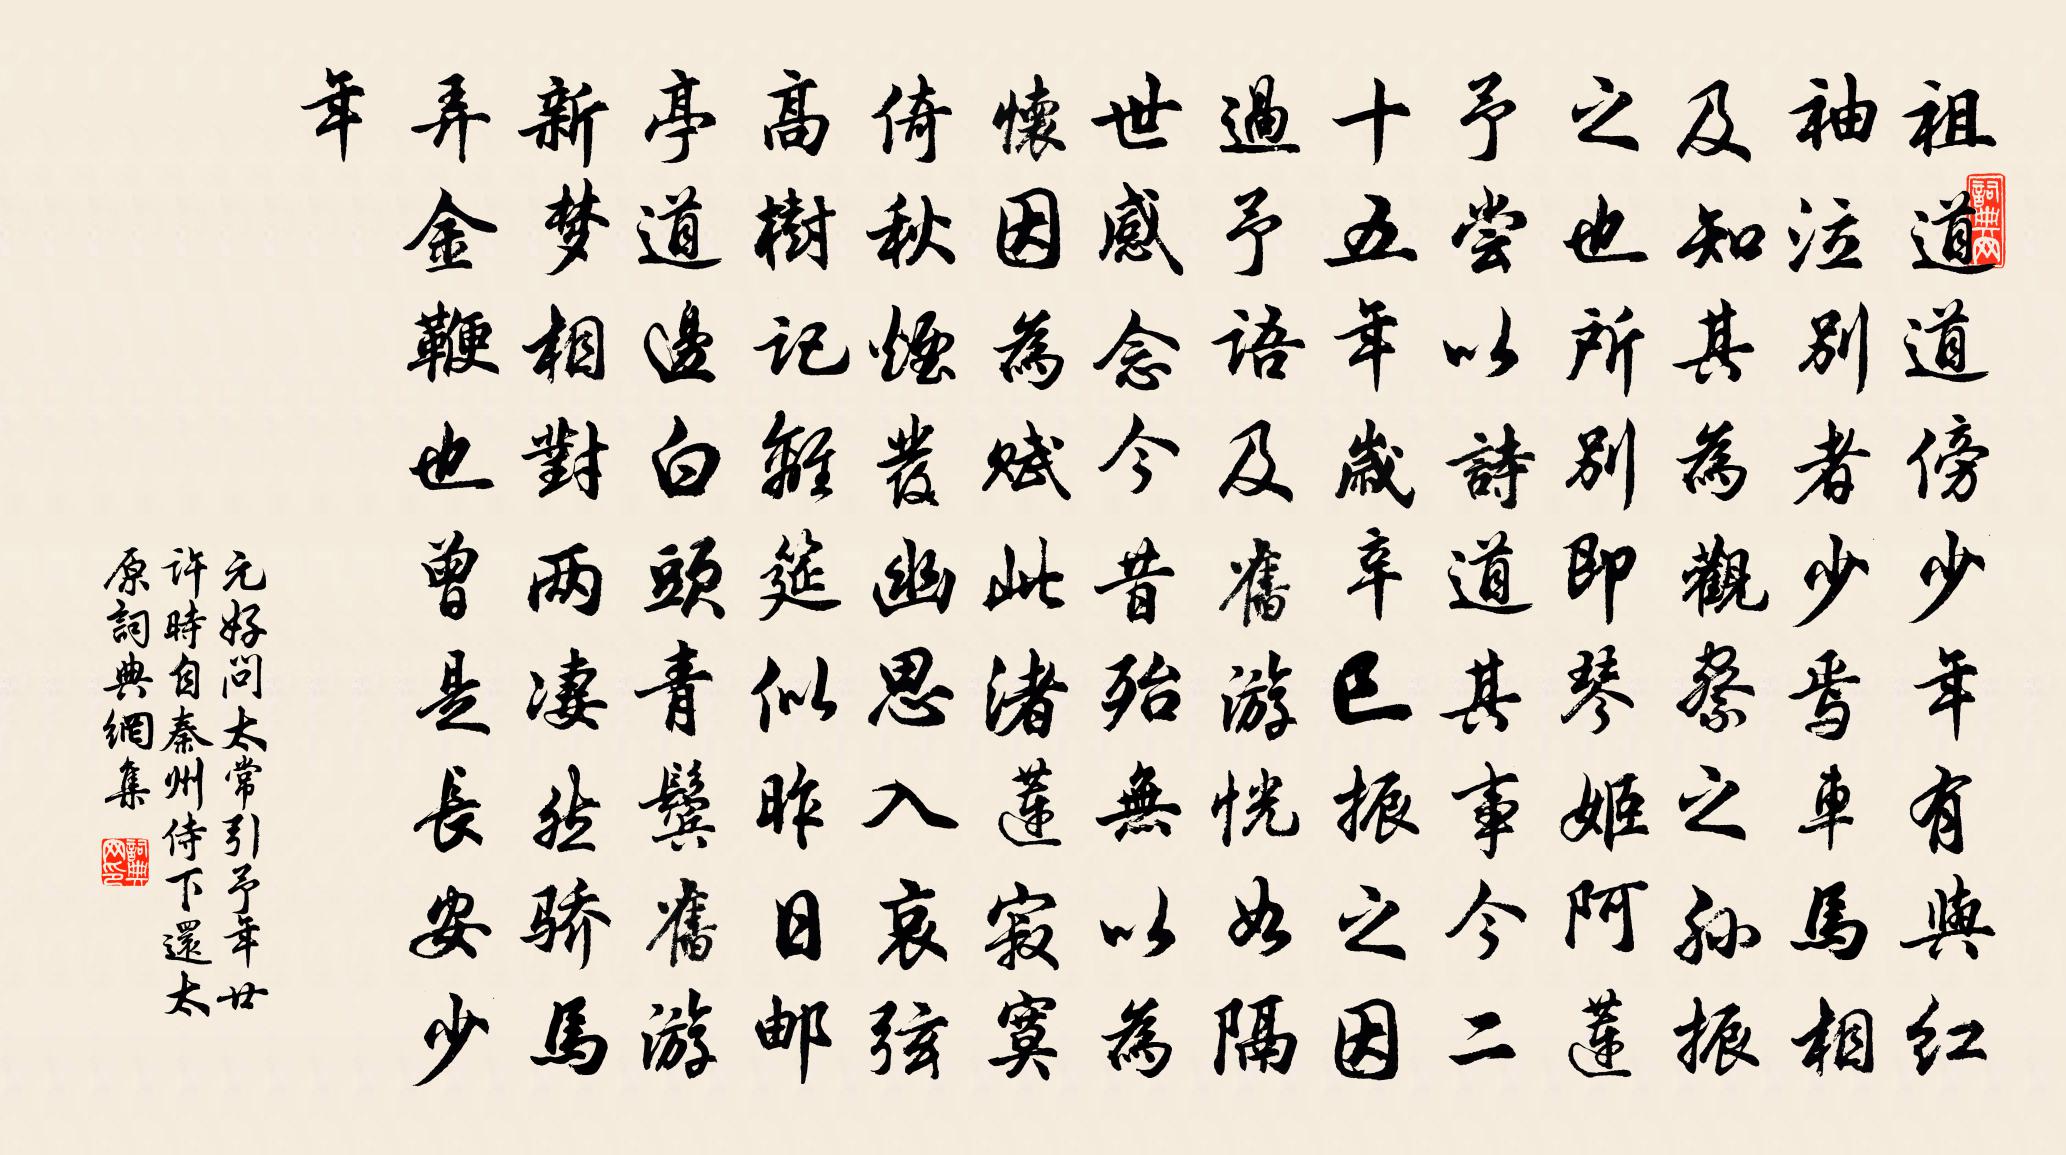 祖道道傍少年有與红
袖泣别者少焉車馬相
及知其為觀察之孙振
之也所别即琴姬阿蓮
予尝以詩道其事今二
十五年歲辛巳振之因
過予語及舊游恍如隔
世感念今昔殆無以為
懷因為赋此渚蓮寂寞
倚秋煙發幽思入哀弦
高樹記離筵似昨日邮
亭道邊白頭青鬓舊游
新梦相對两凄然骄馬
弄金鞭也曾是長安少
年
元好问太常引予年廿
许時自秦州侍下還太
原詞典網集
詞典网
詞典网印